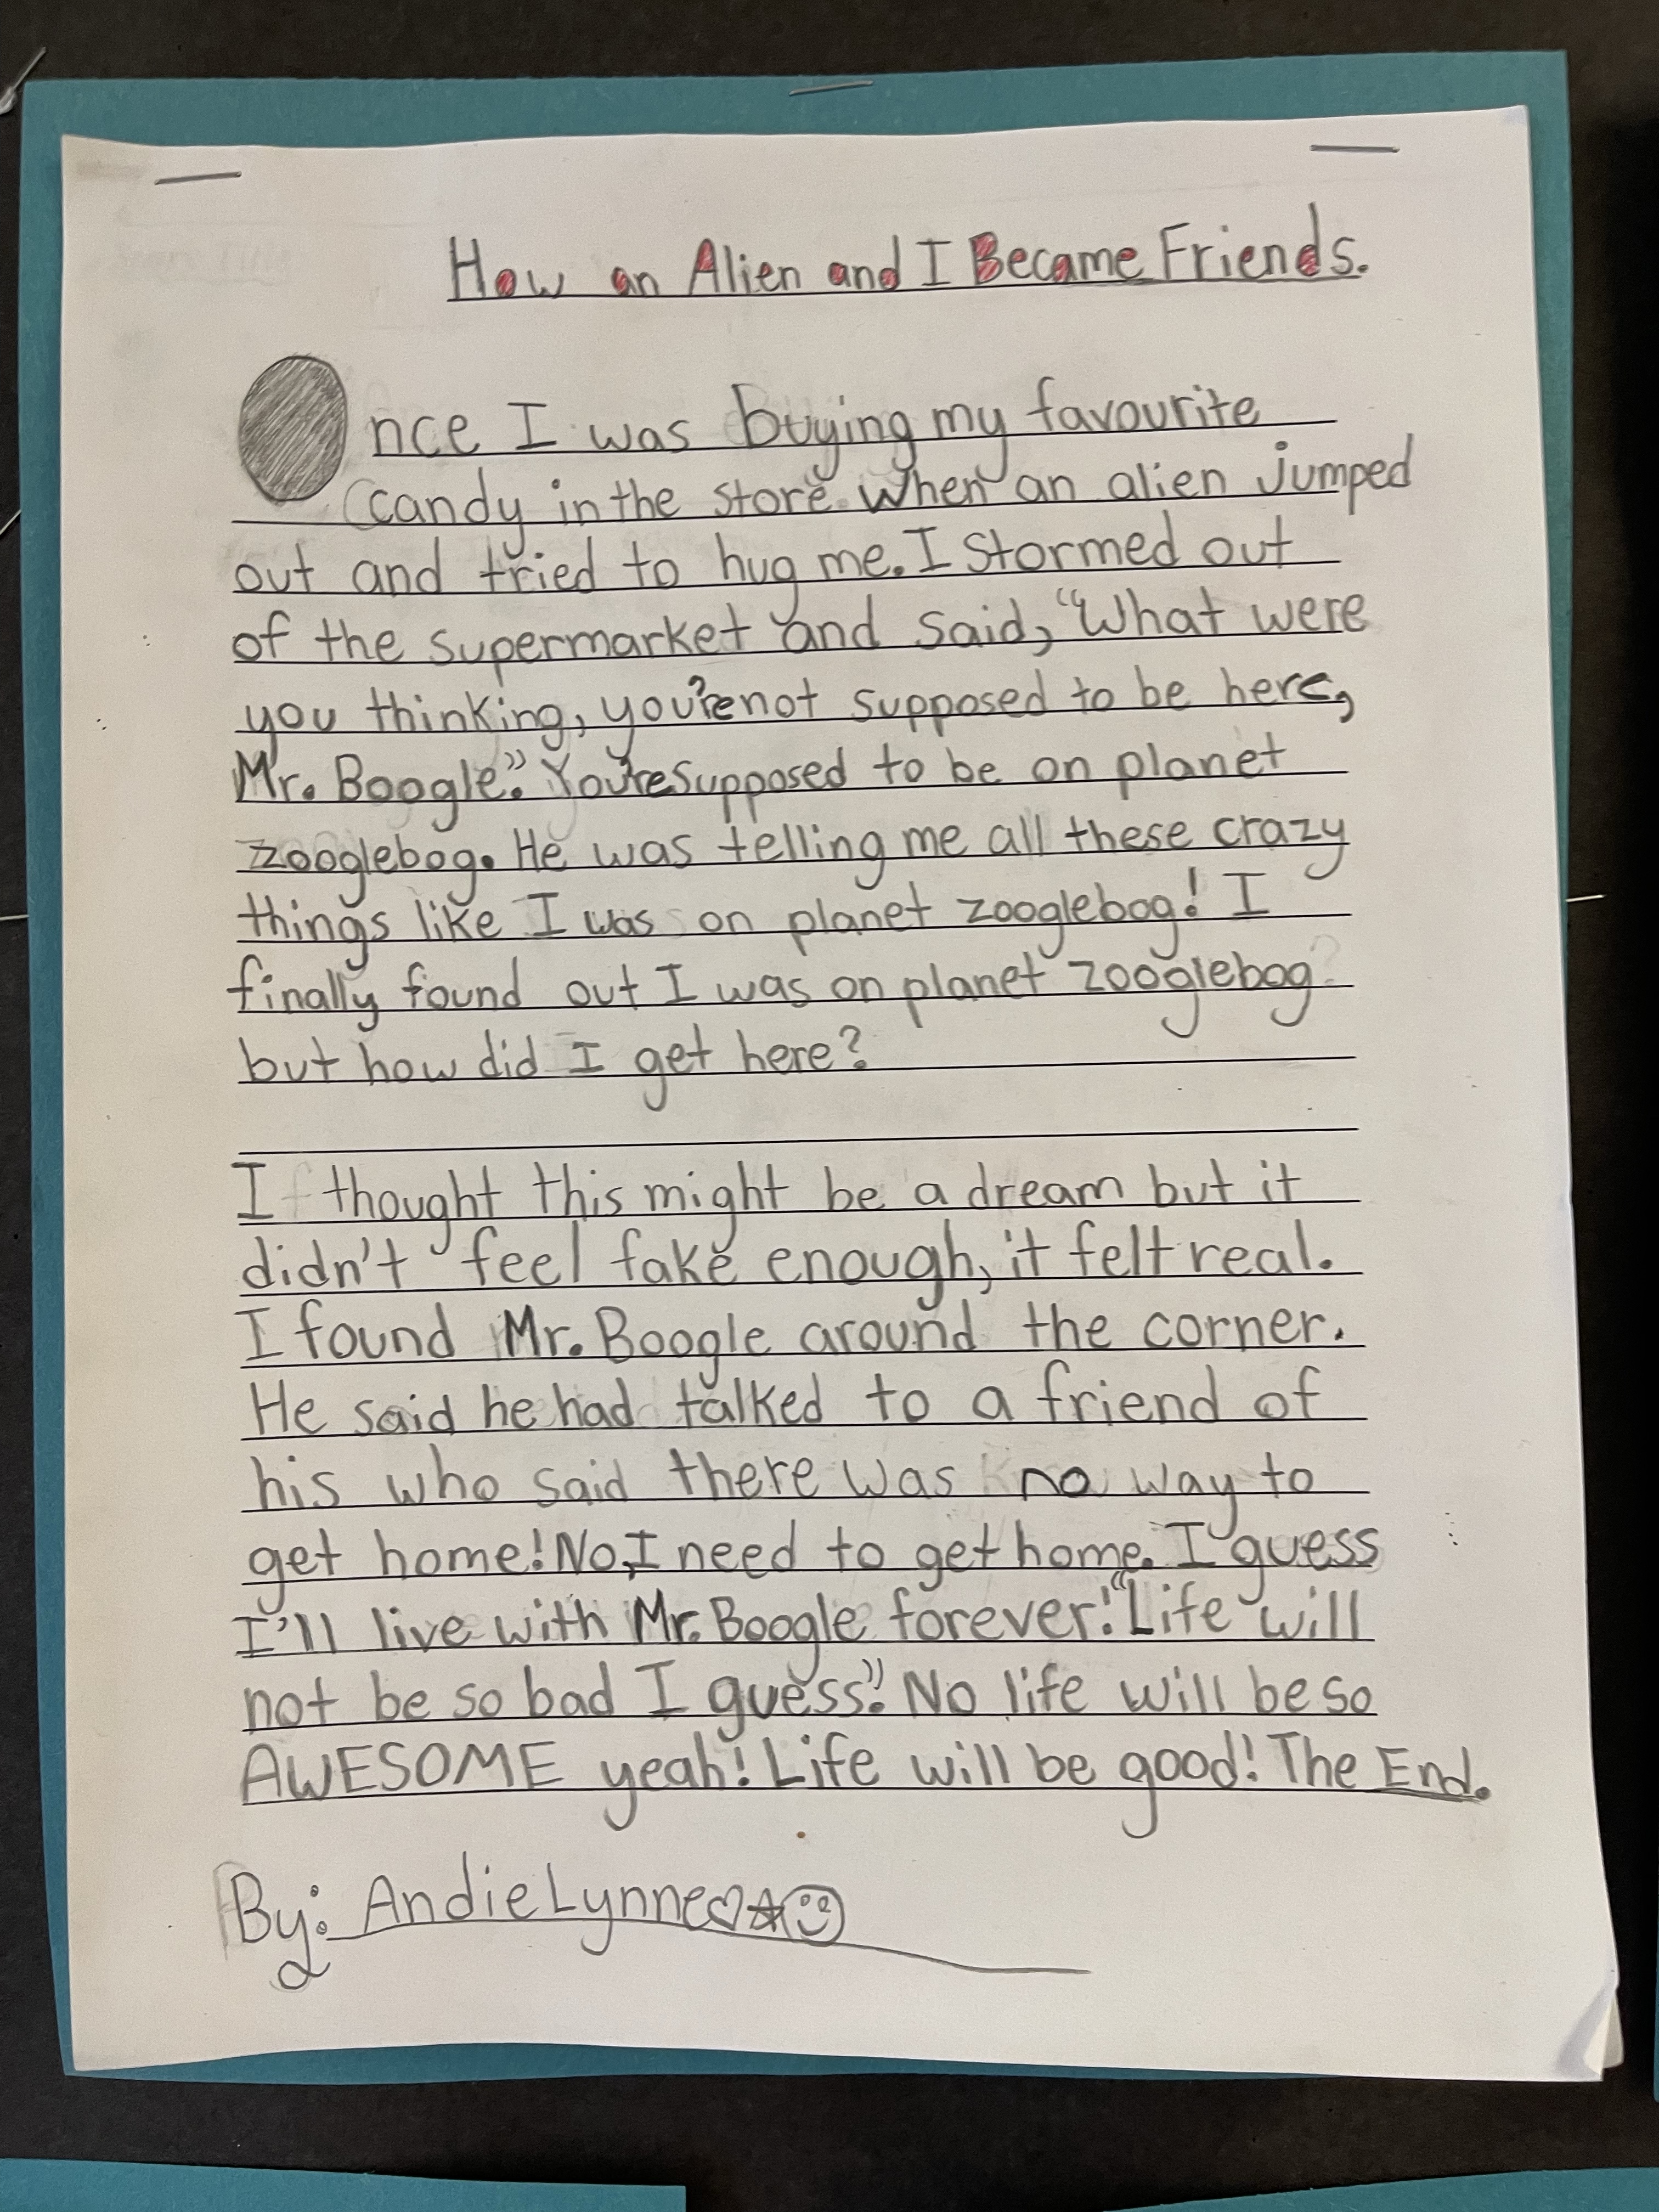 How an Alien and I Became Friends.
Once I was buying my favourite
candy in the store when an alien jumped
out and tried to hug me. I stormed out
of the supermarket and said, "What were
you thinking, you're not supposed to be here,
Mr. Boogle". You're supposed to be on planet
zooglebog. He was telling me all these crazy
things like I was on planet zooglebog! I
finally found out I was on planet zooglebog
but how did I get here?
I thought this might be a dream but it
didn't feel fake enough, it felt real.
I found Mr. Boogle around the corner.
He said he had talked to a friend of
his who said there was no way to
get home! No, I need to get home. I guess
I'll live with Mr. Boogle forever! "Life will
not be so bad I guess". No life will be so
AWESOME yeah! Life will be good! The End.
By: Andie Lynne♡☆☺